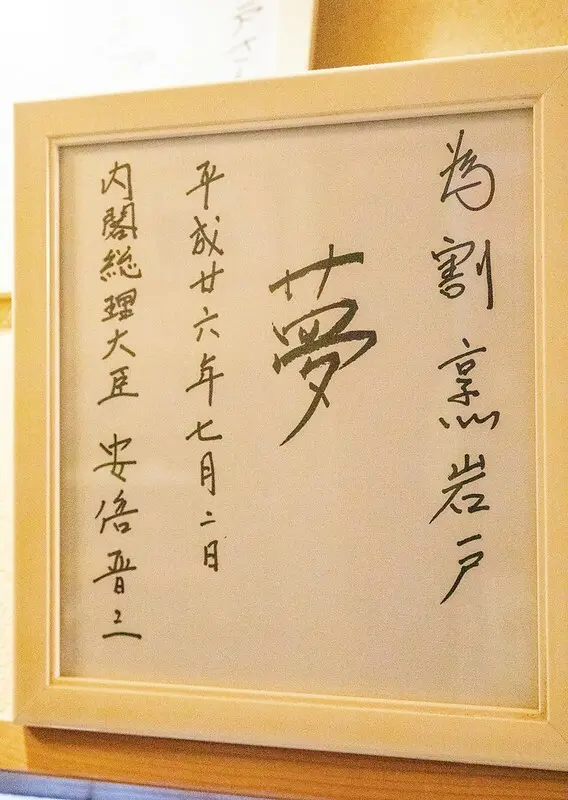 為割烹岩戸
夢
平成廿六年七月二日
内閣総理大臣 安倍晋三